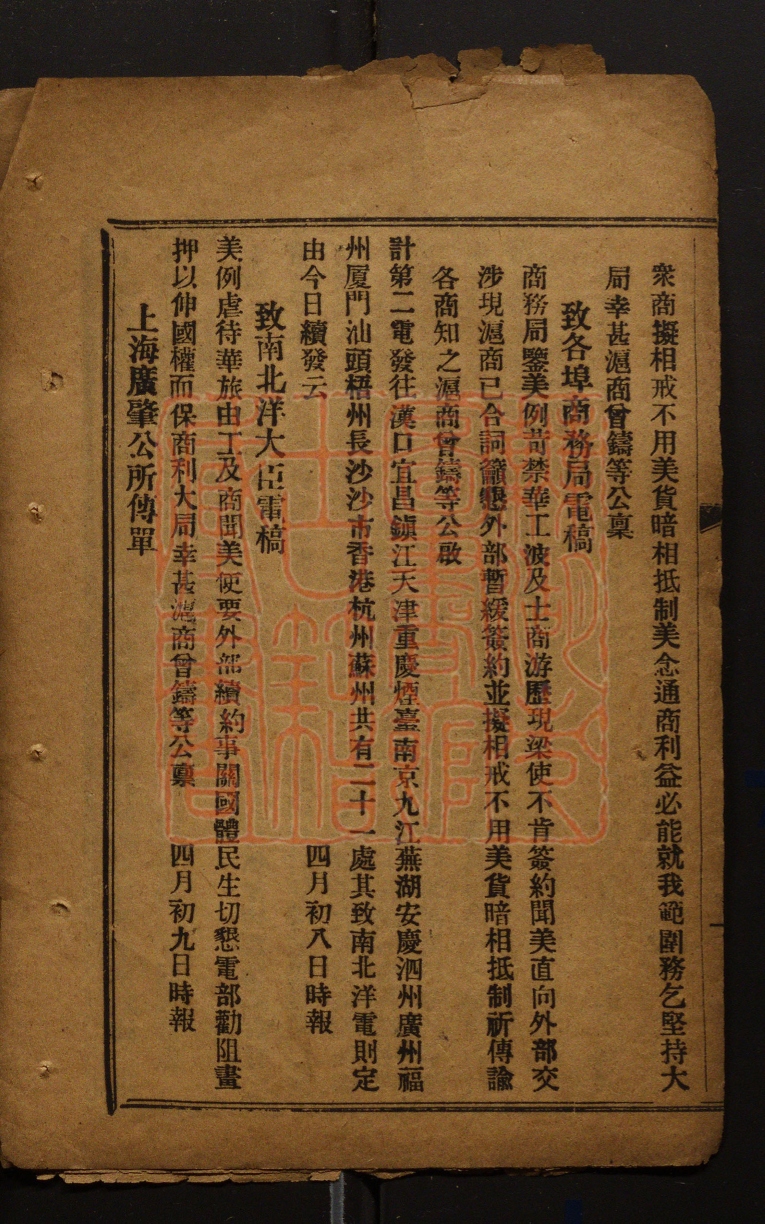 衆商擬相戒不用美貨暗相抵制美念通商利益必能就我範圍務乞堅持大
局幸甚滬商曾鑄等公稟
致各埠商務局電稿
商務局鑒美例苛禁華工波及士商游歷現梁使不肯簽約聞美直向外部交
涉現滬商已合詞籲懇外部暫緩簽約並擬相戒不用美貨暗相抵制祈傳諭
各商知之滬商曾鑄等公啟
計第二電發往漢口宜昌鎮江天津重慶煙臺南京九江蕪湖安慶泗州廣州福
州厦門汕頭梧州長沙沙市香港杭州蘇州共有二十一處其致南北洋電則定
由今日續發云 四月初八日時報
致南北洋大臣電稿
美例虐待華旅由工及商聞美使要外部續約事關國體民生切懇電部勸阻畫
押以伸國權而保商利大局幸甚滬商曾鑄等公稟 四月初九日時報
上海廣肇公所傳單